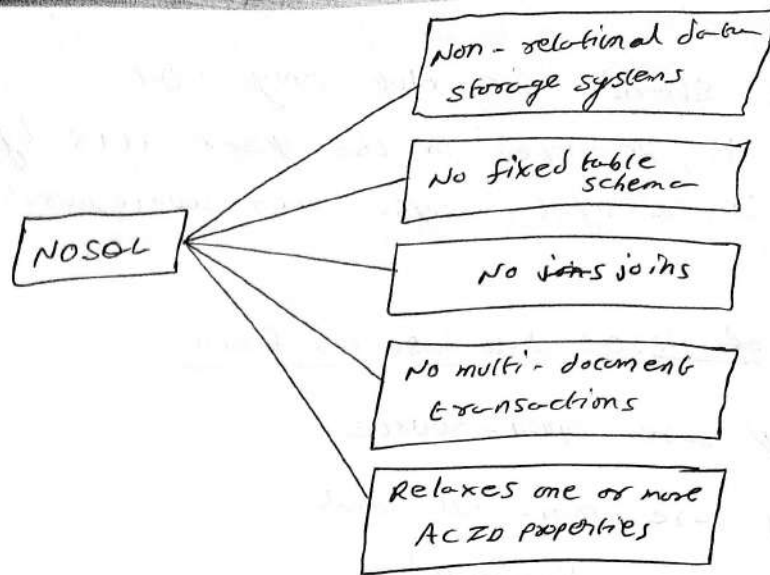 Non-relational data
storage systems
No fixed table
schema
NOSQL
No joins joins
No multi-document
transactions
Relaxes one or more
ACID properties